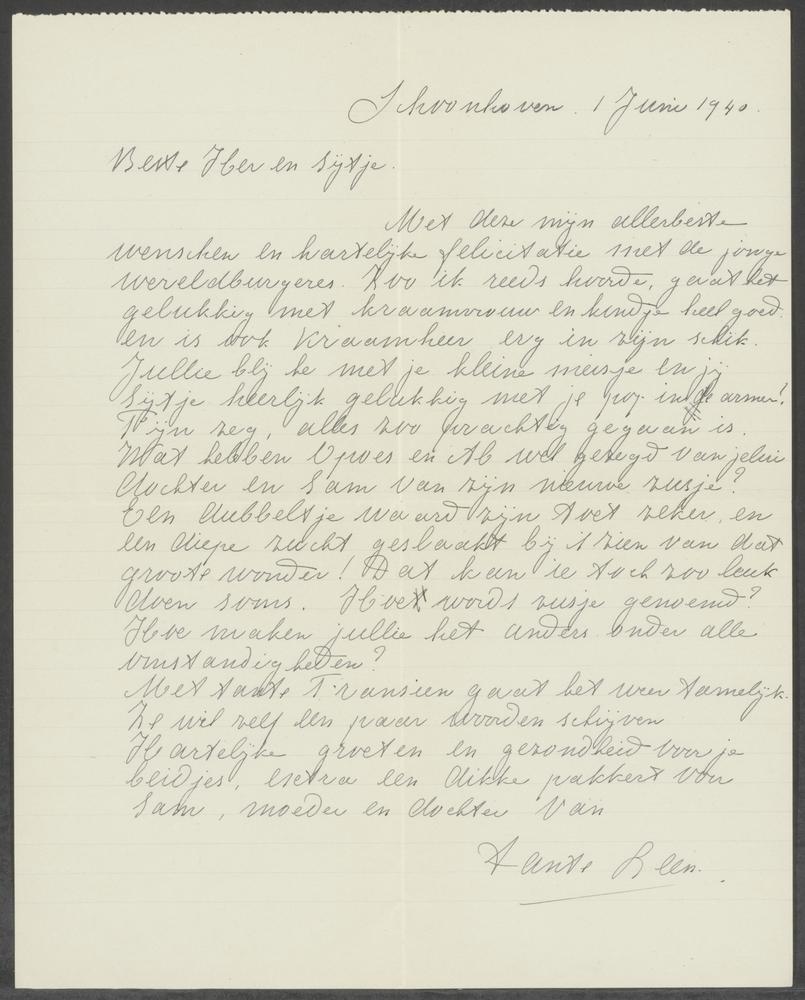 Schoonhoven. 1 Juni 1940.
Beste Her en Sijtje.
Met deze mijn allerbeste
wenschen en hartelijke felicitatie met de jonge
wereldburgeres. Zoo ik reeds hoorde, gaat het
gelukkig met kraamvrouw en kindje heel goed.
en is ook kraamheer erg in zijn schik.
Jullie blij he met je kleine meisje en jij
Sijtje heerlijk gelukkig met je pop in je armen!
Fijn zeg, alles zoo prachtig gegaan is.
Wat hebben Opoes en Ab wel gezegd van jelui
dochter en Sam van zijn nieuwe zusje?
Een dubbeltje waard zijn toet zeker, en
een diepe zucht geslaakt bij 't zien van dat
groote wonder! Dat kan ie toch zoo leuk
doen soms. Hoe wordt zusje genoemd?
Hoe maken jullie het anders onder alle
omstandigheden?
Met tante Fransien gaat het weer tamelijk.
Ze wil zelf een paar woorden schijven
Hartelijke groeten en gezondheid voor je
beidjes, esctra een dikke pakkert voor
Sam, moeder en dochter van
Tante Leen.